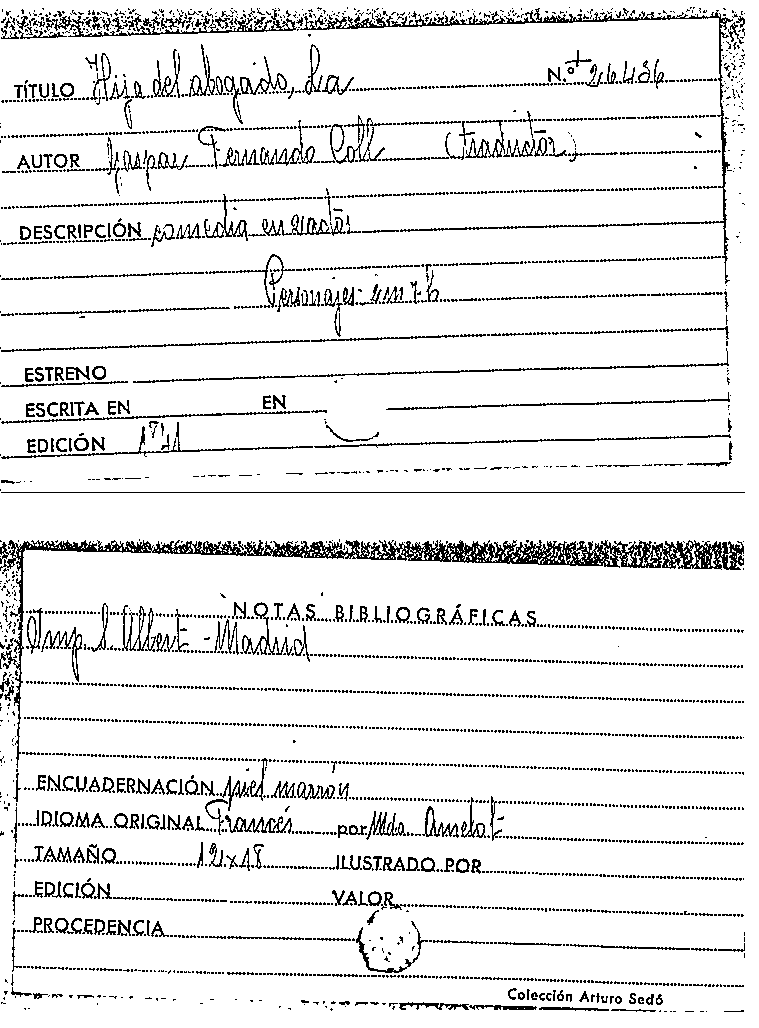 TÍTULO Hija del abogado, La N.º 26436
AUTOR Gaspar Fernando Coll (traductor)
DESCRIPCIÓN comedia en 2 actos
Personajes: 4m 7h
ESTRENO
ESCRITA EN EN
EDICIÓN 1841
NOTAS BIBLIOGRÁFICAS
Imp. S. Albert - Madrid
ENCUADERNACIÓN piel marrón
IDIOMA ORIGINAL Francés por Mda Ancelot
TAMAÑO 12x18 ILUSTRADO POR
EDICIÓN VALOR
PROCEDENCIA
Colección Arturo Sedó